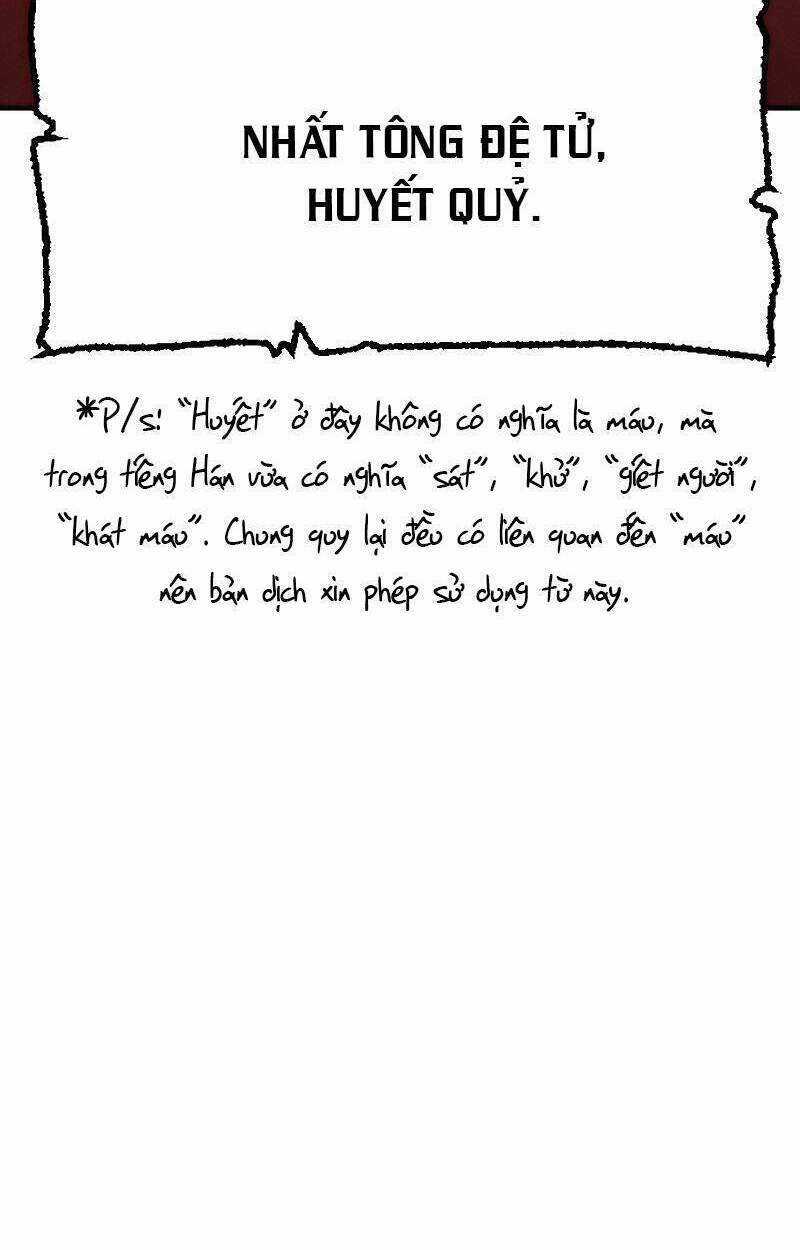 NHẤT TÔNG ĐỆ TỬ,
HUYẾT QUỶ.
*P/s: “Huyết” ở đây không có nghĩa là máu, mà
trong tiếng Hán vừa có nghĩa “sát”, “khử”, “giết người”,
“khát máu”. Chung quy lại đều có liên quan đến “máu”
nên bản dịch xin phép sử dụng từ này.